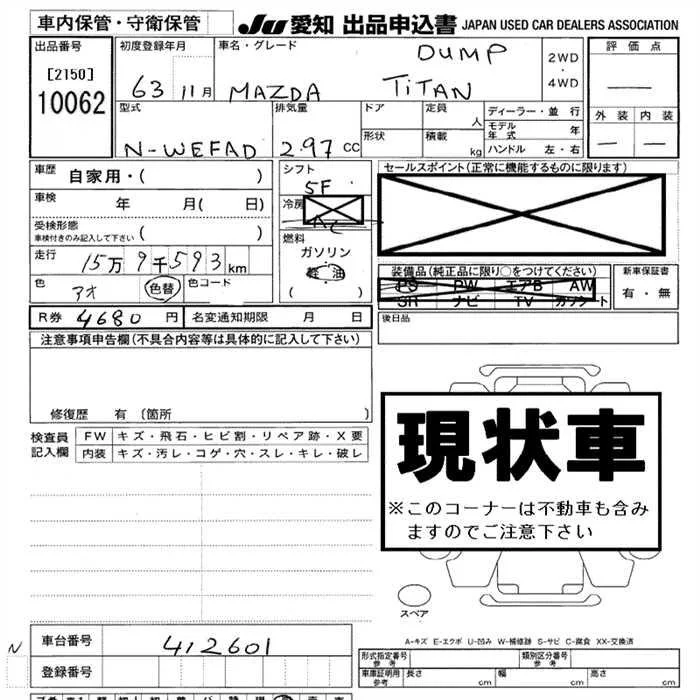 車内保管・守衛保管
JU 愛知 出品申込書 JAPAN USED CAR DEALERS ASSOCIATION
出品番号
[2150]
10062
初度登録年月
63 11月
車名・グレード
DUMP
MAZDA TITAN
2WD
・
4WD
評価点
外装 内装
型式
N-WEFAD
排気量
2.97 CC
ドア
形状
定員
人
積載
kg
ディーラー・並行
モデル年式 年
ハンドル 左・右
車歴 自家用・( )
車検 年 月( 日)
受検形態
車検付きのみ記入して下さい ( )
走行 15万9千593km
色 アオ 色替 色コード
シフト
5F
冷房
AC
燃料
ガソリン
軽油
( )
セールスポイント(正常に機能するものに限ります)
装備品(純正品に限り○をつけてください)
PS PW エアB AW
SR ナビ TV カワシート
新車保証書
有・無
R券 4680円 名変通知期限 月 日
後日品
注意事項申告欄(不具合内容等は具体的に記入して下さい)
修復歴 有 (箇所 )
検査員
記入欄
FW キズ・飛石・ヒビ割・リペア跡・X要
内装 キズ・汚レ・コゲ・穴・スレ・キレ・破レ
現状車
※このコーナーは不動車も含み
ますのでご注意下さい
スペア
A-キズ E-エクボ U-凹み W-補修跡 S-サビ C-腐食 XX-交換済
N
車台番号 412601
登録番号
形式指定番号
参考
類別区分番号
参考
車庫証明用
参考
長さ cm 幅 cm 高さ cm